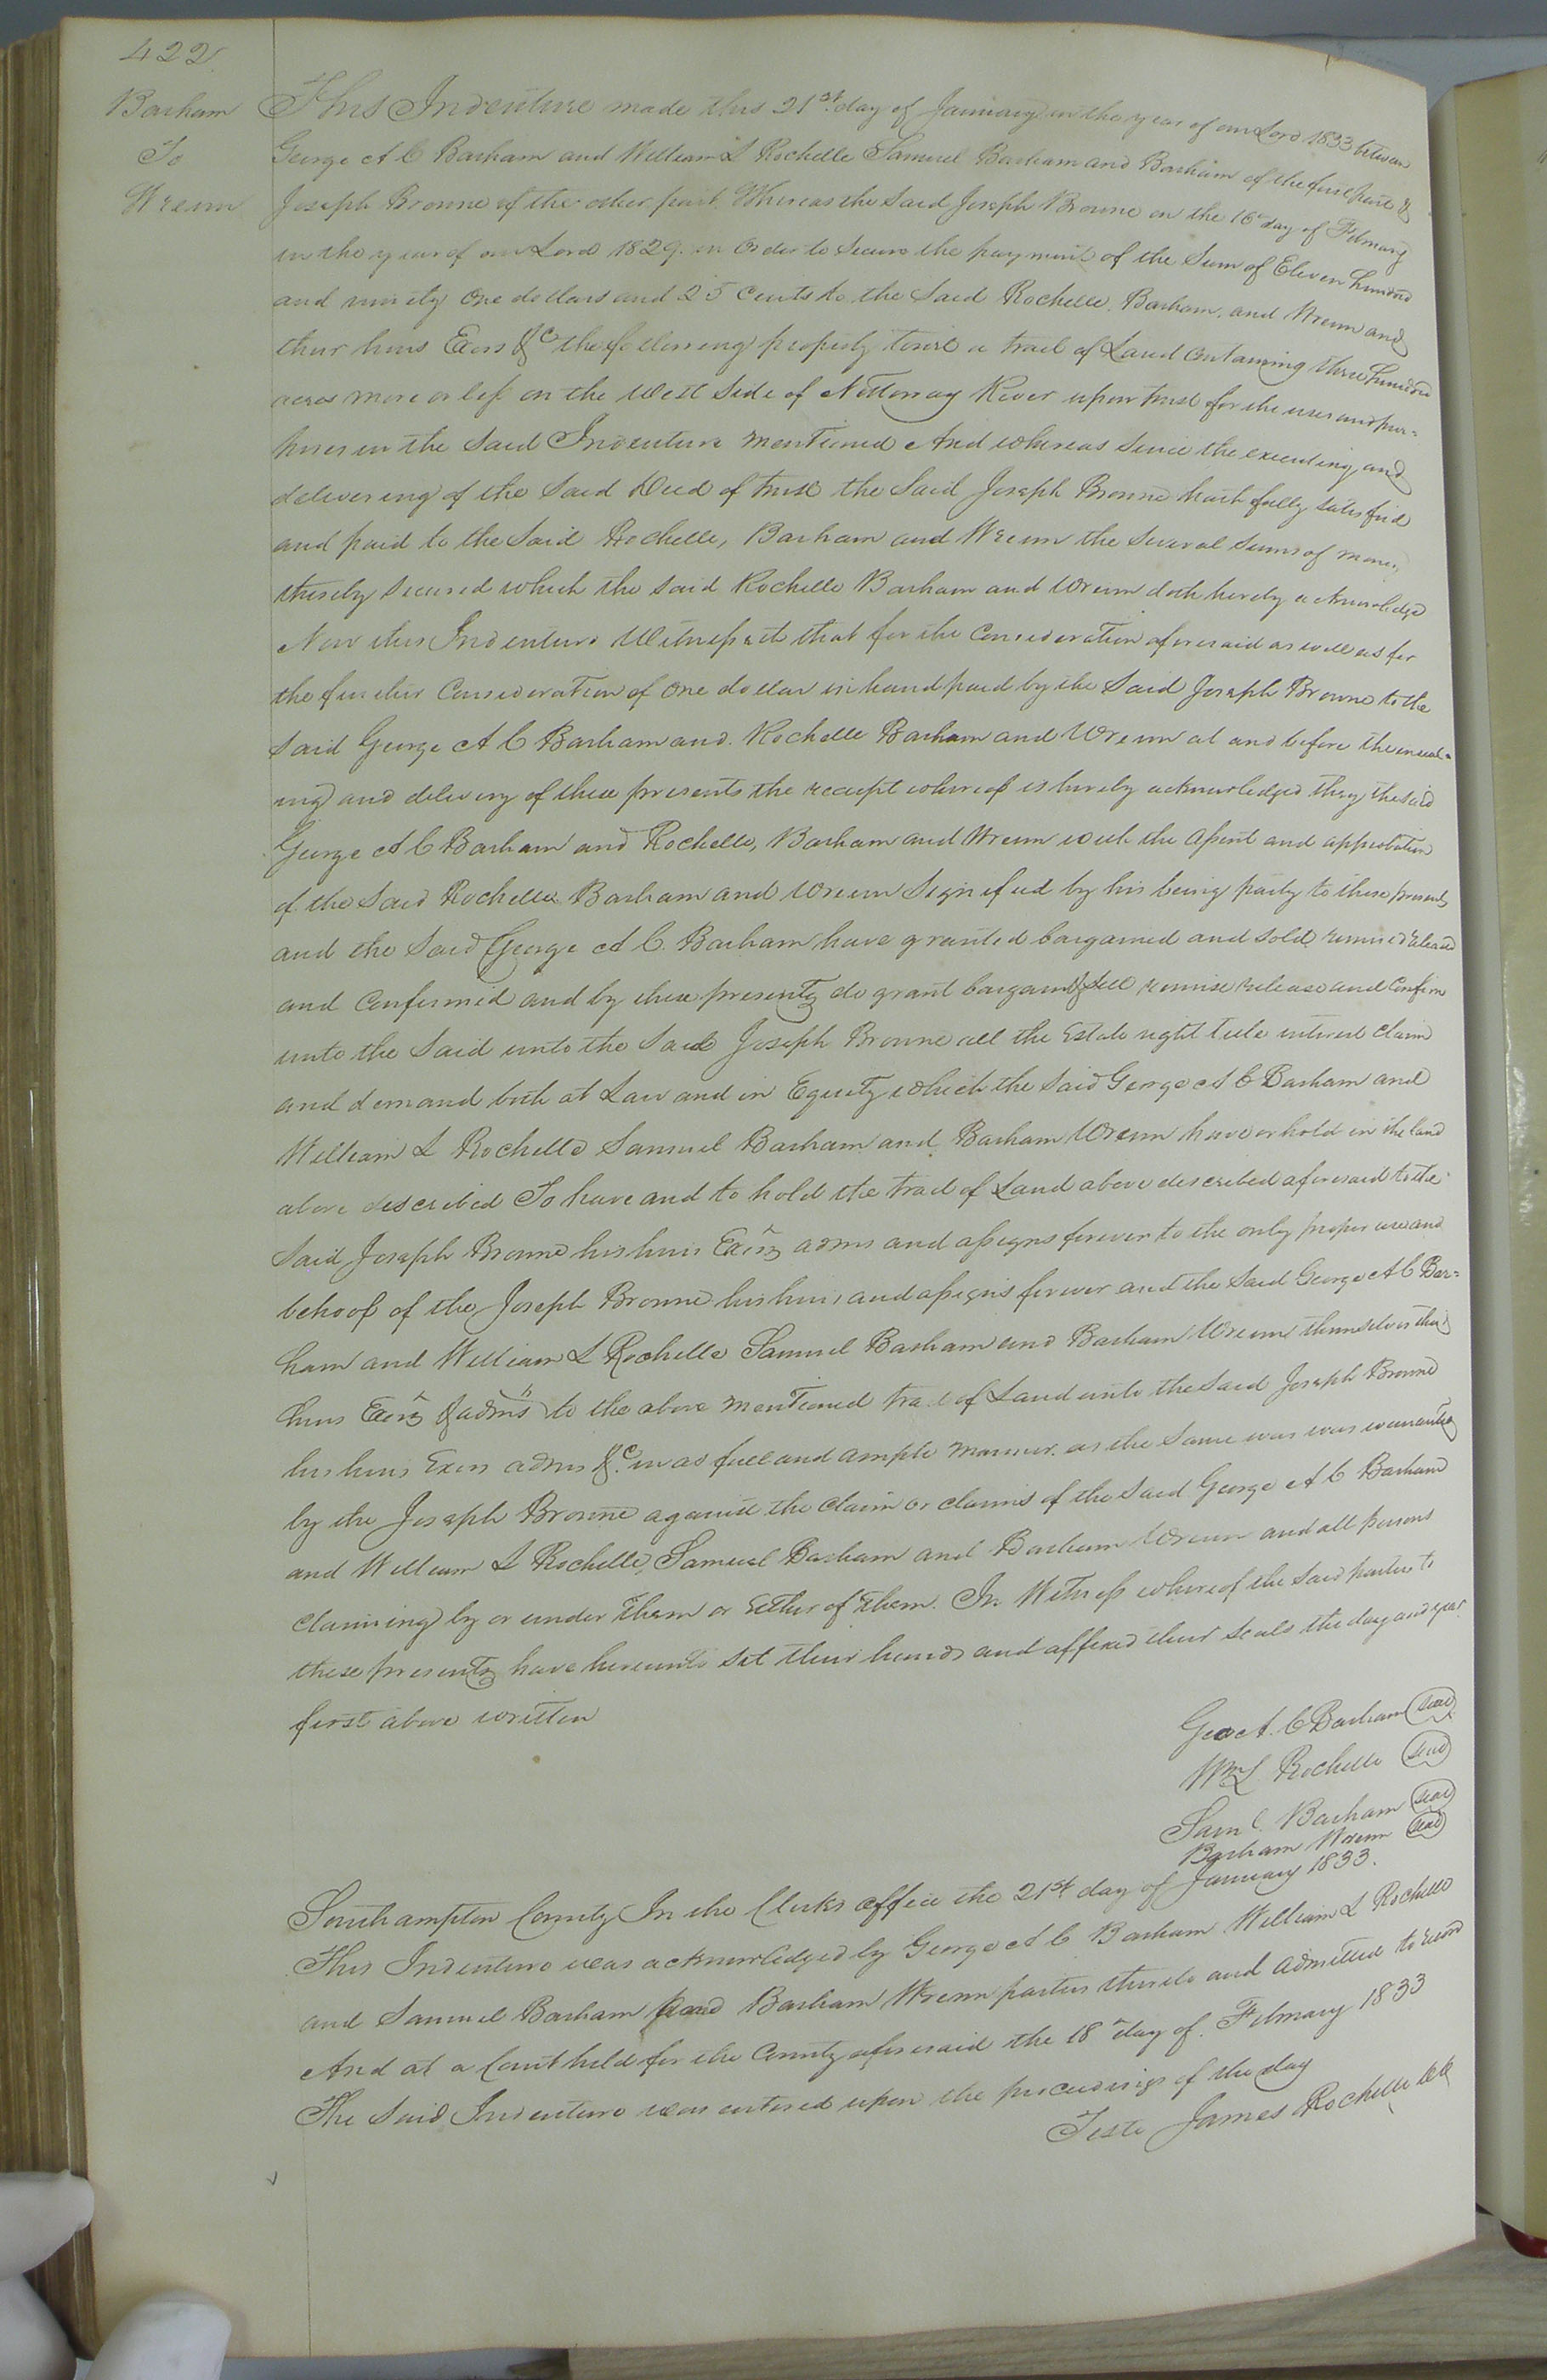 422
Barham
To
Wrenn
This Indenture made this 21st day of January in the year of our Lord 1833 between
George A C Barham and William L Rochelle Samuel Barham and Barham of the first part &
Joseph Browne of the other part. Whereas the said Joseph Browne on the 16th day of February
in the year of our Lord 1829. in order to secure the payment of the Sum of Eleven hundred
and ninety One dollars and 25 Cents to the said Rochelle, Barham, and Wrenn and
their heirs Exors &c the following property towit a tract of Land Containing three hundred
acres more or less on the West Side of Nottoway River upon trust for the uses and pur=
poses in the said Indenture mentioned And whereas since the executing and
delivering of the said Deed of trust the Said Joseph Browne hath fully satisfied
and paid to the said Rochelle, Barham and Wrenn the several sums of money
thereby secured which the said Rochelle Barham and Wrenn doth hereby acknowledge
Now this Indenture Witnesseth that for the Consideration aforesaid as well as for
the further Consideration of One dollar in hand paid by the Said Joseph Browne to the
said George A C Barham and. Rochelle Barham and Wrenn at and before the enseal=
ing and delivery of these presents the receipt whereof is hereby acknowledged they the said
George A C Barham and Rochelle, Barham and Wrenn with the assent and approbation
of the said Rochelle Barham and Wrenn Signified by his being party to these presents
and the said George A C. Barham have granted bargained and sold, remised released
and Confirmed and by these presents do grant bargain & sell remise release and Confirm
unto the Said unto the Said Joseph Browne all the Estate right title interest claim
and demand both at Law and in Equity which the said George A C Barham and
William L Rochelle Samuel Barham and Barham Wrenn have or hold in the land
above described To have and to hold the tract of Land above described aforesaid to the
Said Joseph Browne his heirs Exors adms and assigns forever to the only proper use and
behoof of the Joseph Browne his heirs and assigns forever and the Said George A C Bar=
ham and William L Rochelle Samuel Barham and Barham Wrenn themselves their
heirs Exors & adms to the above mentioned tract of Land unto the Said Joseph Browne
his heirs Exors adms &c. in as full and ample manner. as the Same was was warranted
by the Joseph Browne against the claim or claims of the said George A C Barham
and William L Rochelle, Samuel Barham and Barham Wrenn and all persons
claiming by or under them or Either of them. In Witness whereof the said parties to
these presents have hereunto set their hands and affixed their seals the day and year
first above written
Geo A. C Barham seal
Wm L Rochelle seal
Saml. Barham seal
Barham Wrenn seal
Southampton County In the Clerks office the 21st day of January 1833.
This Indenture was acknowledged by George A C Barham William L Rochelle
and Samuel Barham and Barham Wrenn parties thereto and admitted to record
And at a Court held for the County aforesaid the 18th day of. February 1833
The Said Indenture was entered upon the proceedings of the day
Teste James Rochelle